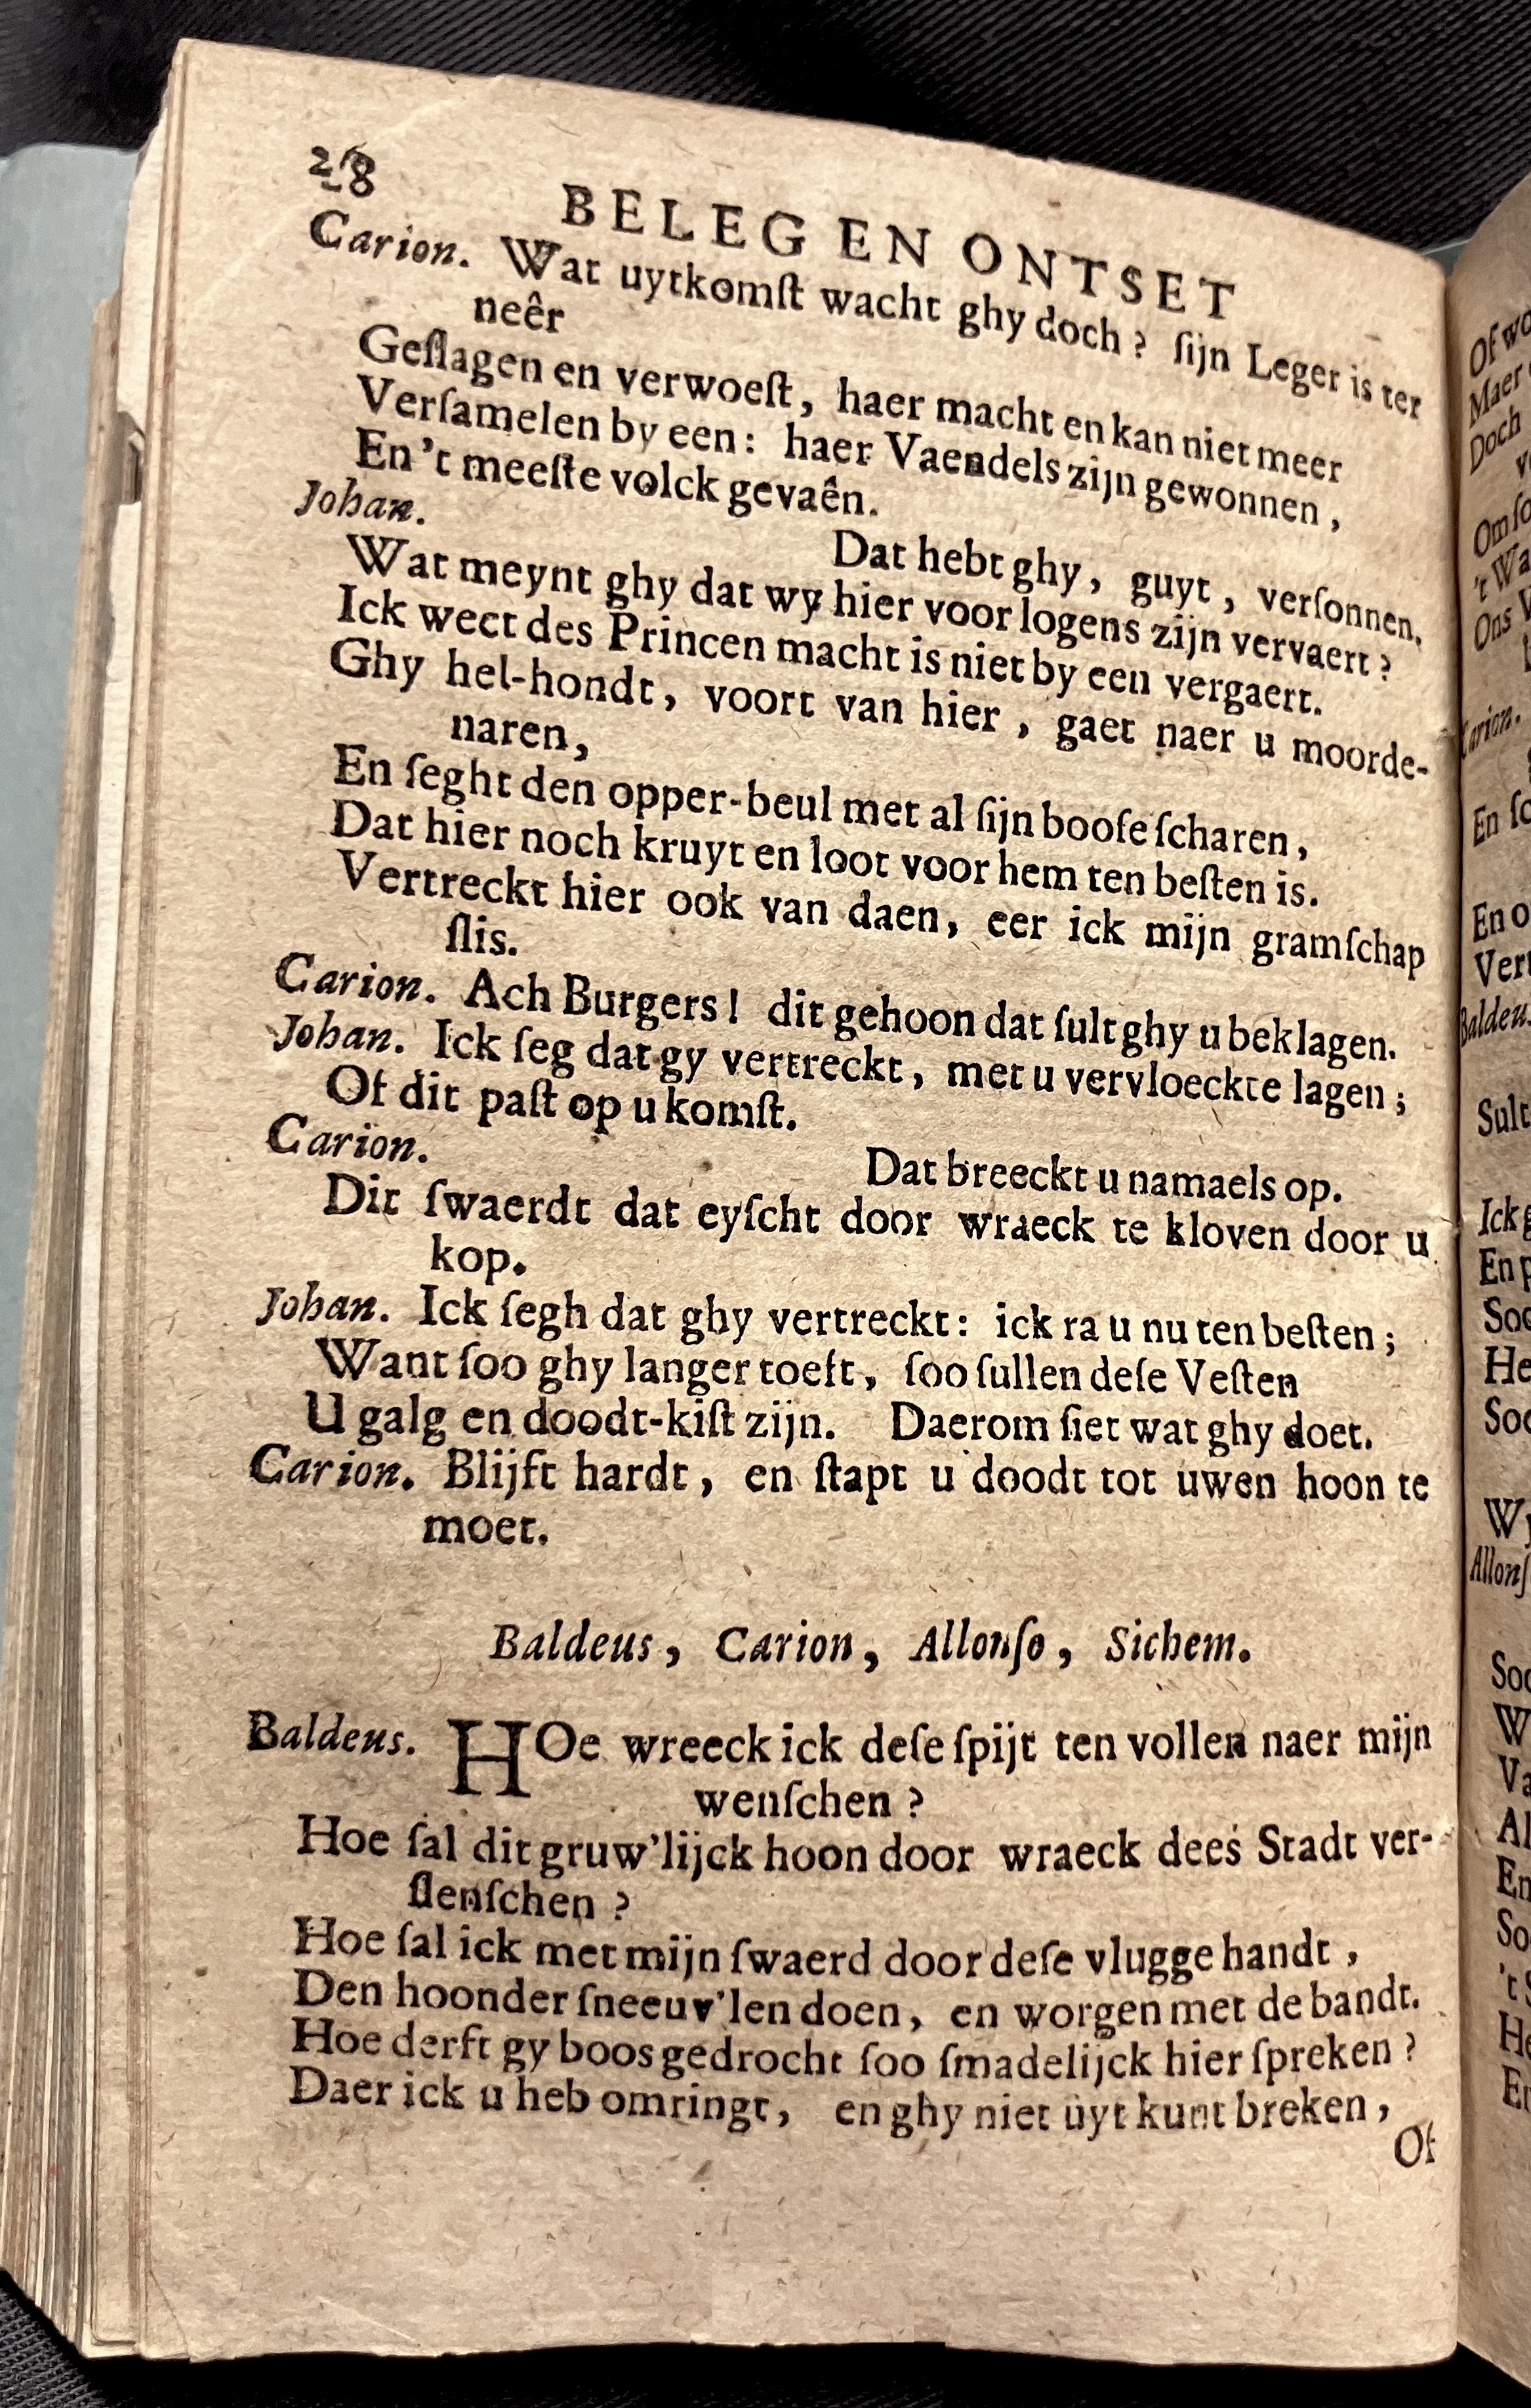 28
BELEG EN ONTSET
Carion. Wat uytkomſt wacht ghy doch? ſijn Leger is ter
neêr
Geſlagen en verwoeſt, haer macht en kan niet meer
Verſamelen by een: haer Vaendels zijn gewonnen,
En 't meeſte volck gevaên.
Johan.
Dat hebt ghy, guyt, verſonnen.
Wat meynt ghy dat wy hier voor logens zijn vervaert?
Ick weet des Princen macht is niet by een vergaert.
Ghy hel-hondt, voort van hier, gaet naer u moorde-
naren,
En ſeght den opper-beul met al ſijn booſe ſcharen,
Dat hier noch kruyt en loot voor hem ten beſten is.
Vertreckt hier ook van daen, eer ick mijn gramſchap
ſlis.
Carion. Ach Burgers! dit gehoon dat ſult ghy u beklagen.
Johan. Ick ſeg dat gy vertreckt, met u vervloeckte lagen;
Of dit paſt op u komſt.
Carion.
Dat breeckt u namaels op.
Dit ſwaerdt dat eyſcht door wraeck te kloven door u
kop.
Johan. Ick ſegh dat ghy vertreckt: ick ra u nu ten beſten;
Want ſoo ghy langer toeft, ſoo ſullen deſe Veſten
U galg en doodt-kiſt zijn. Daerom ſiet wat ghy doet.
Carion. Blijft hardt, en ſtapt u doodt tot uwen hoon te
moet.
Baldeus, Carion, Allonſo, Sichem.
Baldeus. HOe wreeck ick deſe ſpijt ten vollen naer mijn
wenſchen?
Hoe ſal dit gruw'lijck hoon door wraeck dees Stadt ver-
ſlenſchen?
Hoe ſal ick met mijn ſwaerd door deſe vlugge handt,
Den hoonder ſneeuv'len doen, en worgen met de bandt.
Hoe derft gy boos gedrocht ſoo ſmadelijck hier ſpreken?
Daer ick u heb omringt, en ghy niet uyt kunt breken,
Of